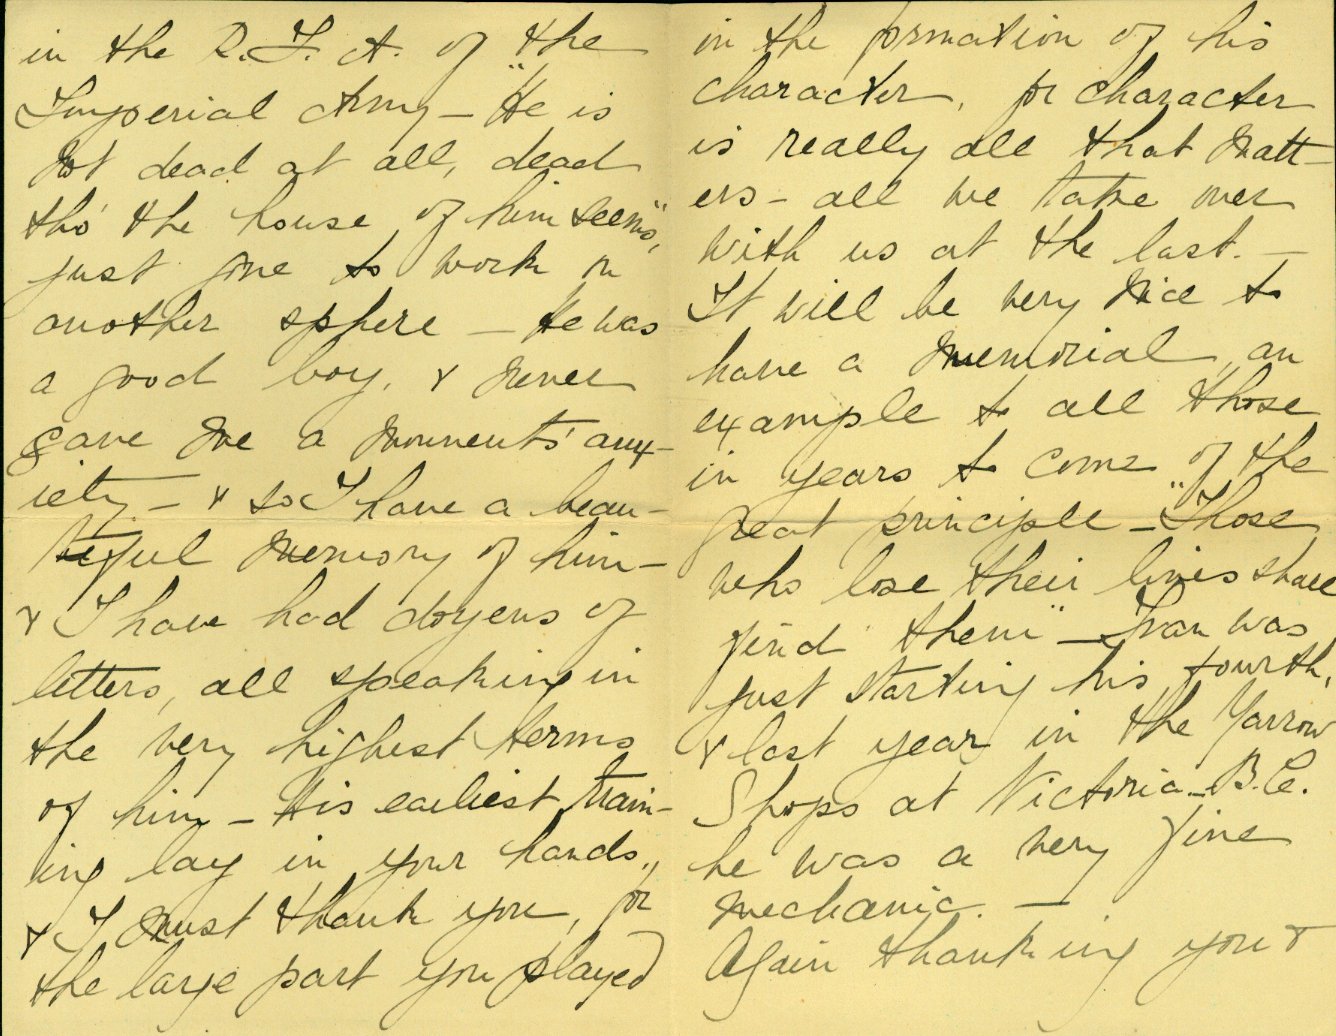 in the R.F.A. of the
Imperial Army – "He is
not dead at all, dead
tho' the house of him seems",
just gone to work on
another sphere – He was
a good boy, & never
gave me a moments' anx-
iety – & so I have a beau-
tiful memory of him –
& I have had dozens of
letters, all speaking in
the very highest terms
of him – His earliest train-
ing lay in your hands.,
& I must thank you, for
the large part you played
in the formation of his
character, for character
is really all that matt-
ers – all we take over
with us at the last. –
It will be very nice to
have a memorial, an
example to all those
in years to come of the
great principle – "Those
who lose their lives shall
find them" – Ivan was
just starting his fourth,
& last year in the Yarrow
Shops at Victoria – B.C.
he was a very fine
mechanic. –
Again thanking you &